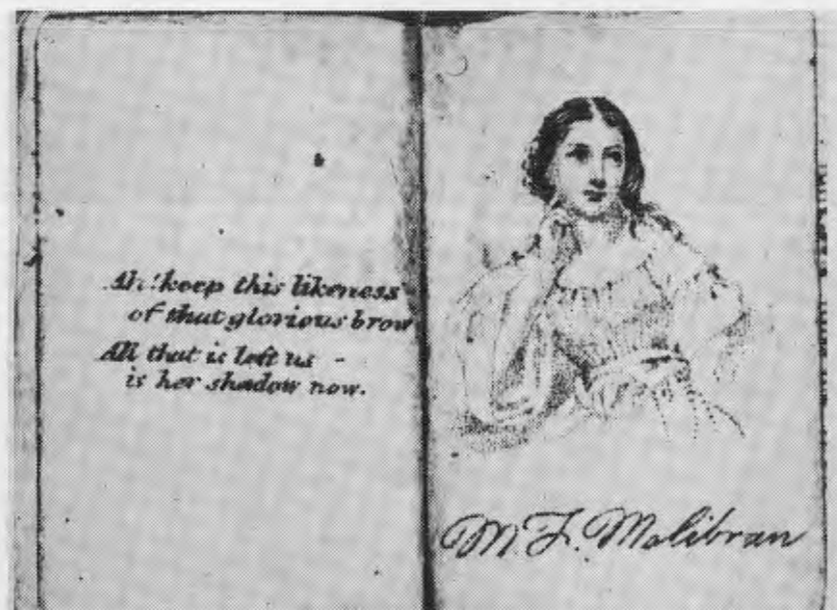 Ah! keep this likeness
of that glorious brow
All that is left us -
is her shadow now.
M. F. Malibran